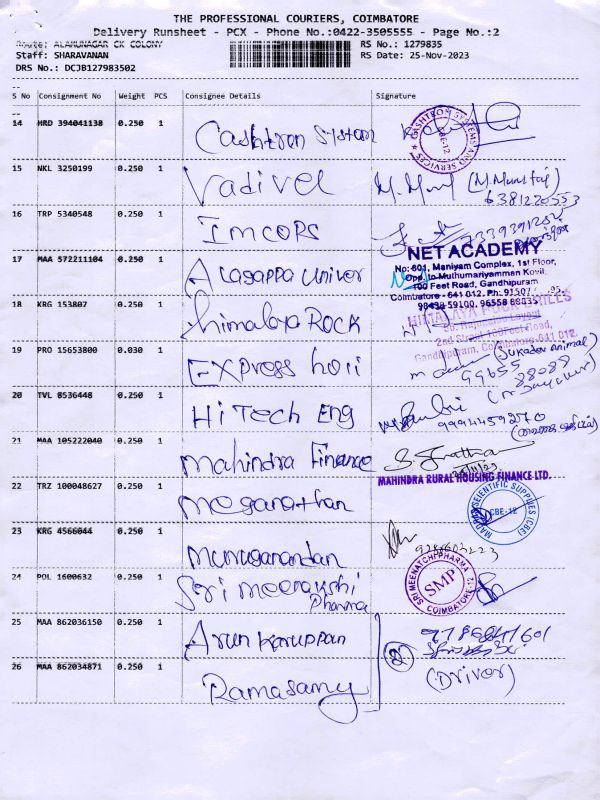 THE PROFESSIONAL COURIERS, COIMBATORE
Delivery Runsheet - PCX - Phone No.:0422-3505555 - Page No.:2
Route: ALAMUNAGAR CK COLONY
RS No.: 1279835
Staff: SHARAVANAN
RS Date: 25-Nov-2023
DRS No.: DCJB127983502
S No Consignment No Weight PCS Consignee Details Signature
14 MRD 394041138 0.250 1 Cashtron System
CASHTRON SYSTEMS AND SERVICES CBE-12
15 NKL 3250199 0.250 1 Vadivel
6381220553
16 TRP 5340548 0.250 1 IMCOPS
17 MAA 572211104 0.250 1 Alagappa Univer
NET ACADEMY
No: 601, Maniyam Complex, 1st Floor,
Opp. to Muthumariyamman Kovil,
100 Feet Road, Gandhipuram
Coimbatore - 641 012. Ph: 91507
98438 59100, 96558 88835
18 KRG 153807 0.250 1 himalaya ROCK
2nd Street, 100Feet Road,
Gandhipuram, Coimbatore-641 012.
19 PRO 15653800 0.030 1 EXpress hoil
(Sukadev animal)
99655 88088
20 TVL 0536448 0.250 1 Hi Tech Eng
9994459270
21 MAA 105222040 0.250 1 mahindra Finance
25/11/23
MAHINDRA RURAL HOUSING FINANCE LTD.
22 TRZ 100048627 0.250 1 meganathan
SCIENTIFIC SUPPLIES (CBE) CBE-12
23 KRG 4566044 0.250 1 muruganandan
24 POL 1600632 0.250 1 Sri meenakshi
Pharma
SRI MEENATCHI PHARMA SMP COIMBATORE-12
25 MAA 862036150 0.250 1 Arun Karuppan
9786841601
26 MAA 862034871 0.250 1 Ramasamy
2
(Driver)